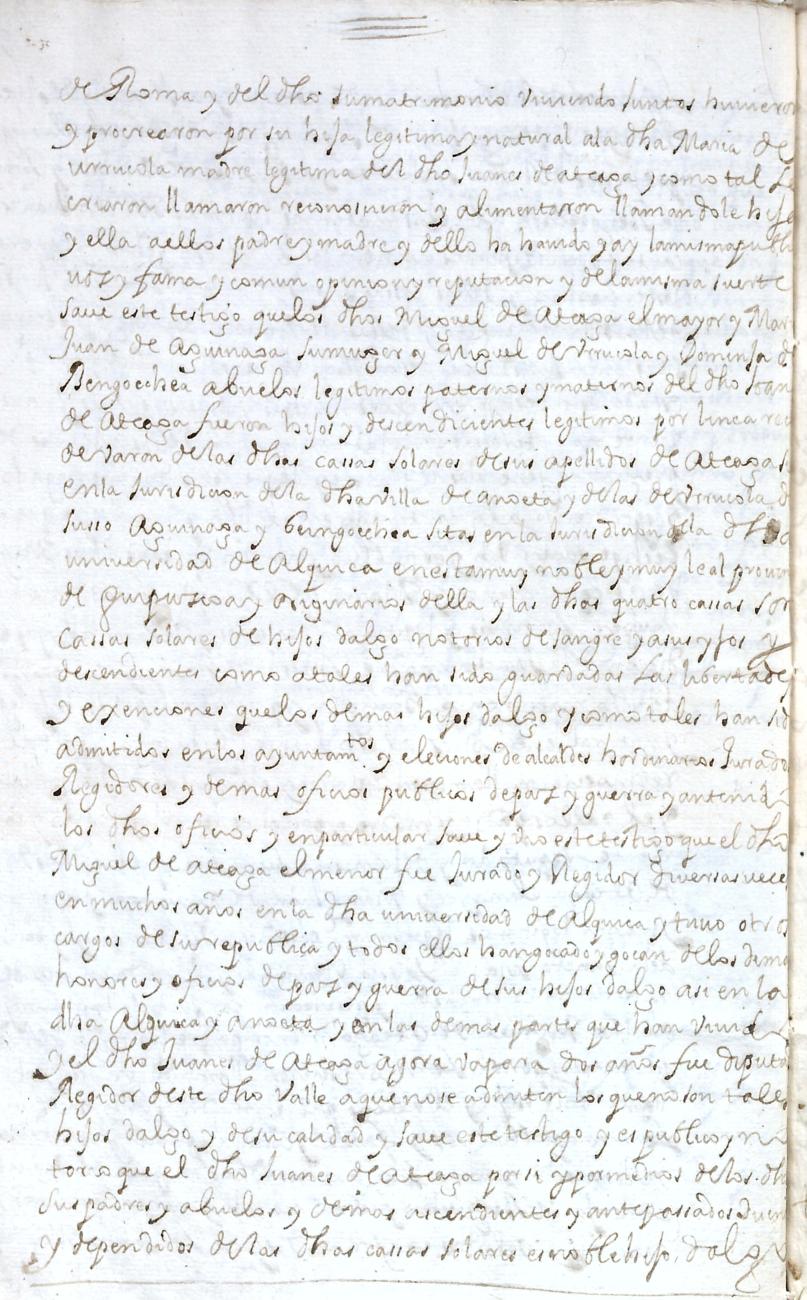 de Roma y del dho sumatrimonio viviendo juntos huvieron
y procrearon por su hija legitima y natural ala dha Maria de
urrucola madre legitima del dho Juanes de ateaga y como tal La
criaron llamaron reconosieron y alimentaron llamandole hija
y ella aellos padre y madre y dello ha havido y ay lamisma publi
voz y fama y comun opinion y reputacion y delamisma suerte
save este testigo quelos dhos Miguel de Ateaga elmayor y Mari
Juan de Aguinaga sumuger y Miguel de Vrrucola y Dominja de
Bengoechea abuelos legitimos paternos y maternos del dho Joan
de Ateaga fueron hijos y descendicientes legitimos por linea rec
de Varon delas dhas cassas solares desus apellidos de Ateaga s
enla Jurisdicion dela dha villa de anoeta y delas de Vrrucola de
susso Aguinaga y bengoechea sitas en la Jurisdicion dela dha
universidad de Alquica enestamuy noble y muy leal provin
de Guipuscoa y originarios della y las dhas quatro cassas son
Cassas solares de hijos dalgo notorios desangre y asus hijos y
descendientes como atales han sido guardadas Las libertades
y exenciones quelos demas hijos dalgo y como tales han sid
admitidos enlos ayuntamtos y eleciones de alcaldes hordinarios Jurados
Regidores y demas oficios publicos depaz y guerra y antenido
los dhos oficios y enparticular save y vio estetestigo que el dho
Miguel de ateaga elmenor fue Jurado y Regidor diversas veces
enmuchos años en la dha universidad de Alquica y tuvo otros
cargos de su republica y todos ellos hangocado y gocan delos dema
honores y oficios depaz y guerra desus hijos dalgo asi en la
dha Alquica y anoeta y enlas demas partes que han vivido
y el dho Juanes de Ateaga agora vapara dos años fue diputa
Regidor deste dho Valle aquenose admiten los quenoson tales
hijos dalgo y desu calidad y save estetestigo y es publico y no
torio que el dho Juanes de Ateaga por si y por medios delos dhos
sus padres y abuelos y demas ascendientes y antepassados
y dependidos delas dhas cassas solares es noble hijo dalgo